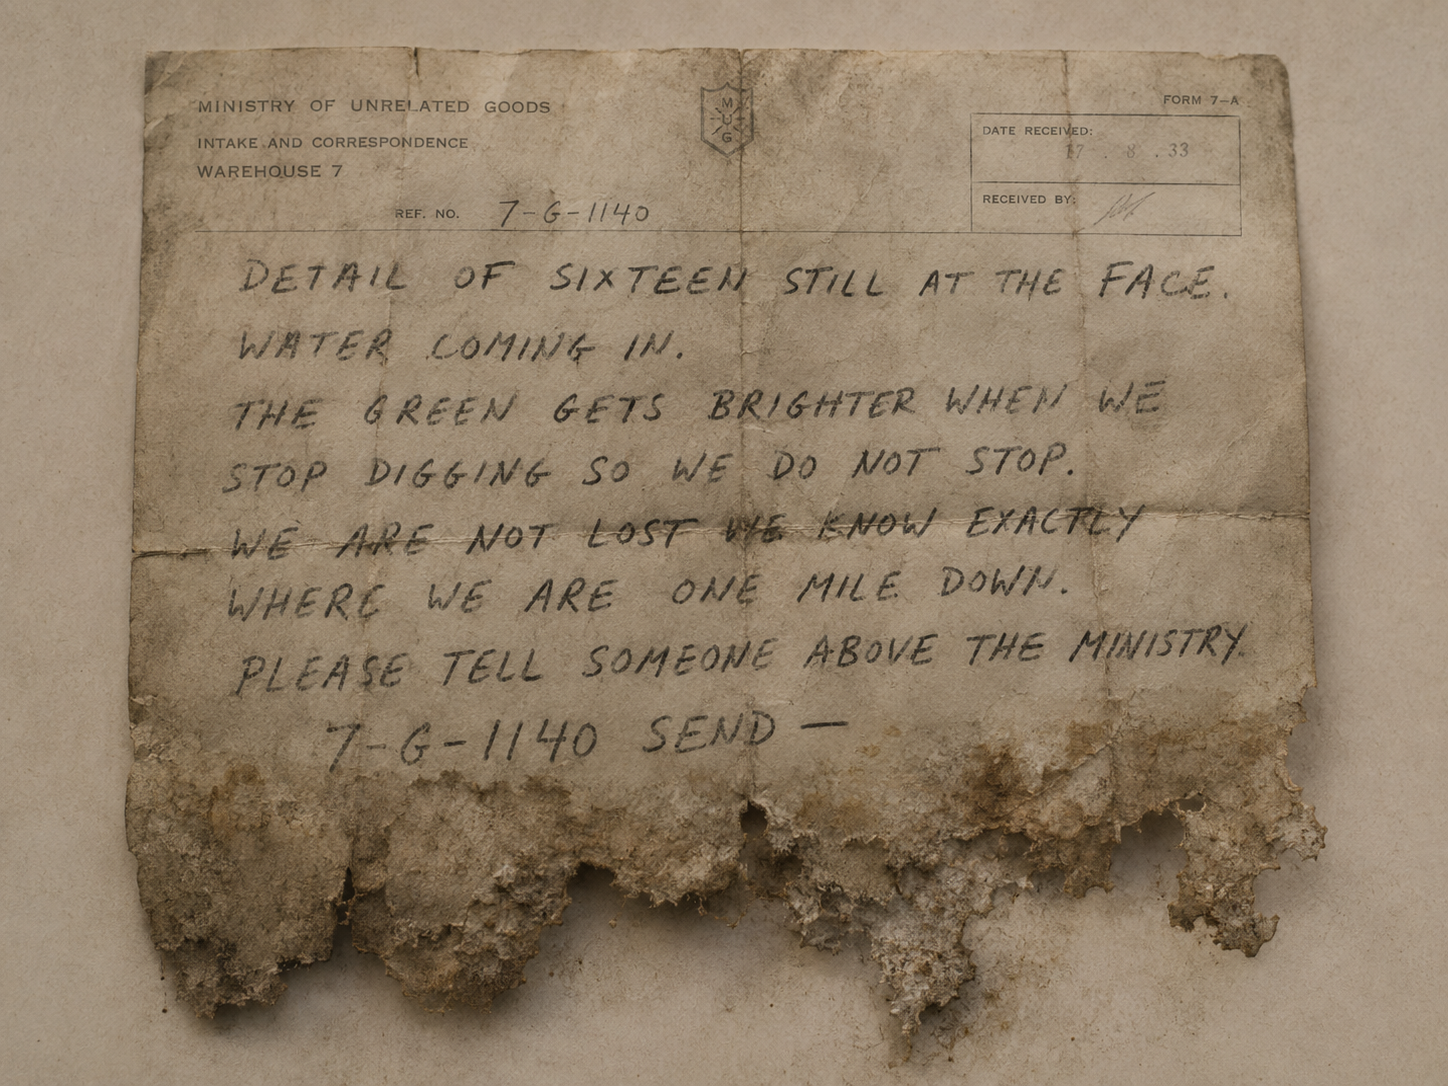 MINISTRY OF UNRELATED GOODS
INTAKE AND CORRESPONDENCE
WAREHOUSE 7
REF. NO. 7-G-1140
M
U
G
FORM 7-A
DATE RECEIVED:
17 . 8 . 33
RECEIVED BY:
DETAIL OF SIXTEEN STILL AT THE FACE.
WATER COMING IN.
THE GREEN GETS BRIGHTER WHEN WE
STOP DIGGING SO WE DO NOT STOP.
WE ARE NOT LOST WE KNOW EXACTLY
WHERE WE ARE ONE MILE DOWN.
PLEASE TELL SOMEONE ABOVE THE MINISTRY.
7-G-1140 SEND —